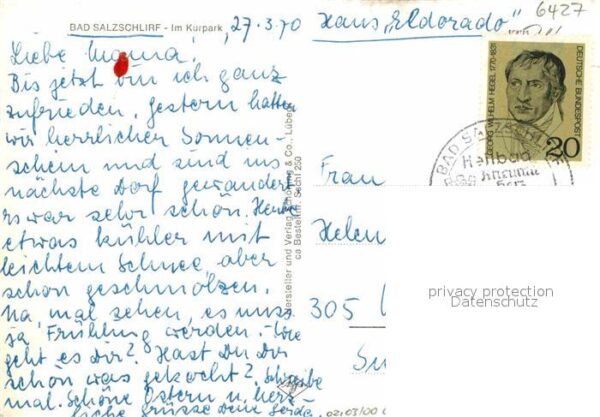 BAD SALZSCHLIRF - Im Kurpark
27.3.70
Haus "Eldorado"
6427
Liebe Mama!
Bis jetzt bin ich ganz
zufrieden. Gestern hatten
wir herrlichen Sonnen-
schein und sind ins
nächste Dorf gewandert
es war sehr schön. Heute
etwas kühler mit
leichtem Schnee, aber
schon geschmolzen.
Na, mal sehen, es muss
ja Frühling werden. - Wie
geht es Dir? Hast Du Dir
schon was gekocht? Schreibe
mal. Schöne Ostern u. herz-
liche Grüsse Deine Gerda
Hersteller und Verlag Schöning & Co., Lübeck
Bestell-Nr. Sach 250
GEORG WILHELM HEGEL 1770-1831
DEUTSCHE BUNDESPOST
20
BAD SALZSCHL
Heilbad
Rheuma
Herz
Frau
Helen
305
privacy protection
Datenschutz